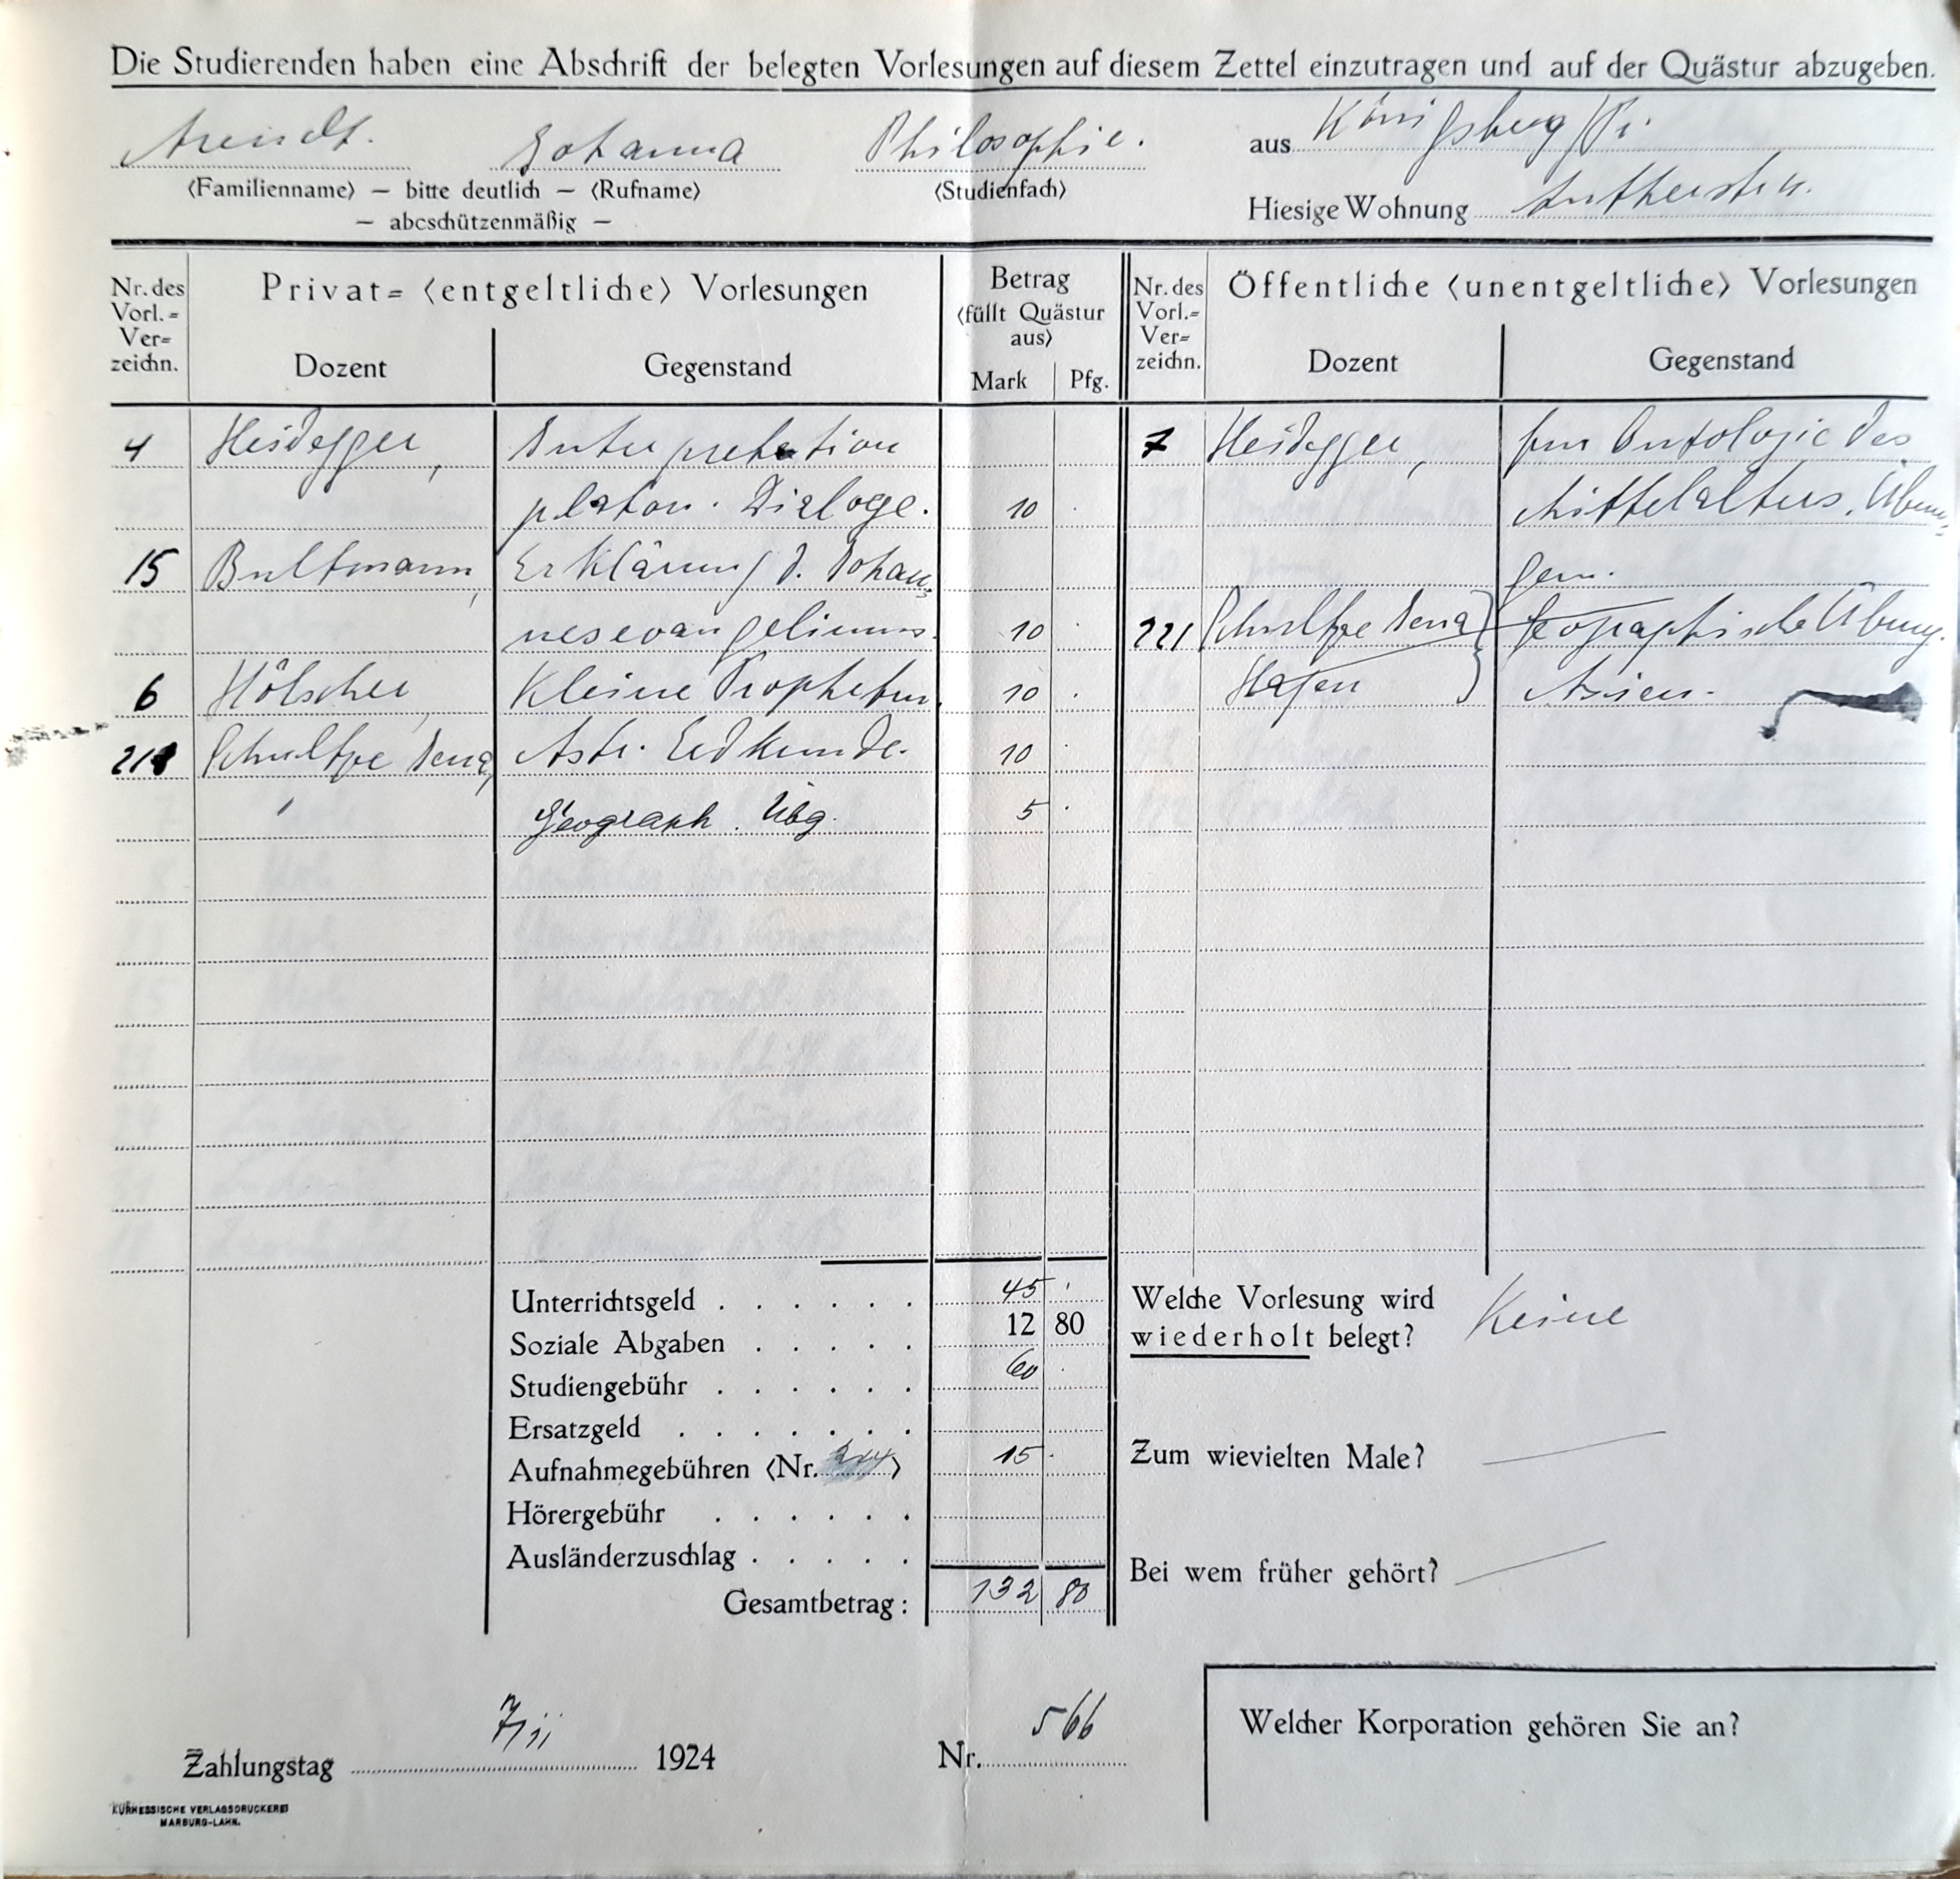 Die Studierenden haben eine Abschrift der belegten Vorlesungen auf diesem Zettel einzutragen und auf der Quästur abzugeben.
Arendt. Johanna Philosophie. aus Königsberg/Pr.
(Familienname) — bitte deutlich — (Rufname) (Studienfach)
— abcschützenmäßig —
Hiesige Wohnung Lutherstr.
Nr. des Vorl.= Ver= zeichn.
Privat= (entgeltliche) Vorlesungen
Dozent Gegenstand
Betrag
(füllt Quästur
aus)
Mark Pfg.
Nr. des Vorl.= Ver= zeichn.
Öffentliche (unentgeltliche) Vorlesungen
Dozent Gegenstand
4 Heidegger, Interpretation
platon. Dialoge. 10 .
15 Bultmann, Erklärung d. Johan=
nesevangeliums. 10 .
6 Hölscher, Kleine Propheten. 10 .
218 Schultze Jena, Astr. Erdkunde. 10 .
" Geograph. Übg. 5 .
7 Heidegger, Zur Ontologie des
Mittelalters. Übun=
gen.
221 Schultze Jena Geographische Übung.
Hagen Asien.
Unterrichtsgeld . . . . . . 45 .
Soziale Abgaben . . . . . 12 80
Studiengebühr . . . . . . 60 .
Ersatzgeld . . . . . . .
Aufnahmegebühren (Nr. ) 15 .
Hörergebühr . . . . . .
Ausländerzuschlag . . . . .
Gesamtbetrag: 132 80
Welche Vorlesung wird
wiederholt belegt? Keine
Zum wievielten Male? —
Bei wem früher gehört? —
Zahlungstag 7/11 1924 Nr. 566
Welcher Korporation gehören Sie an?
KURHESSISCHE VERLAGSDRUCKEREI
MARBURG-LAHN.